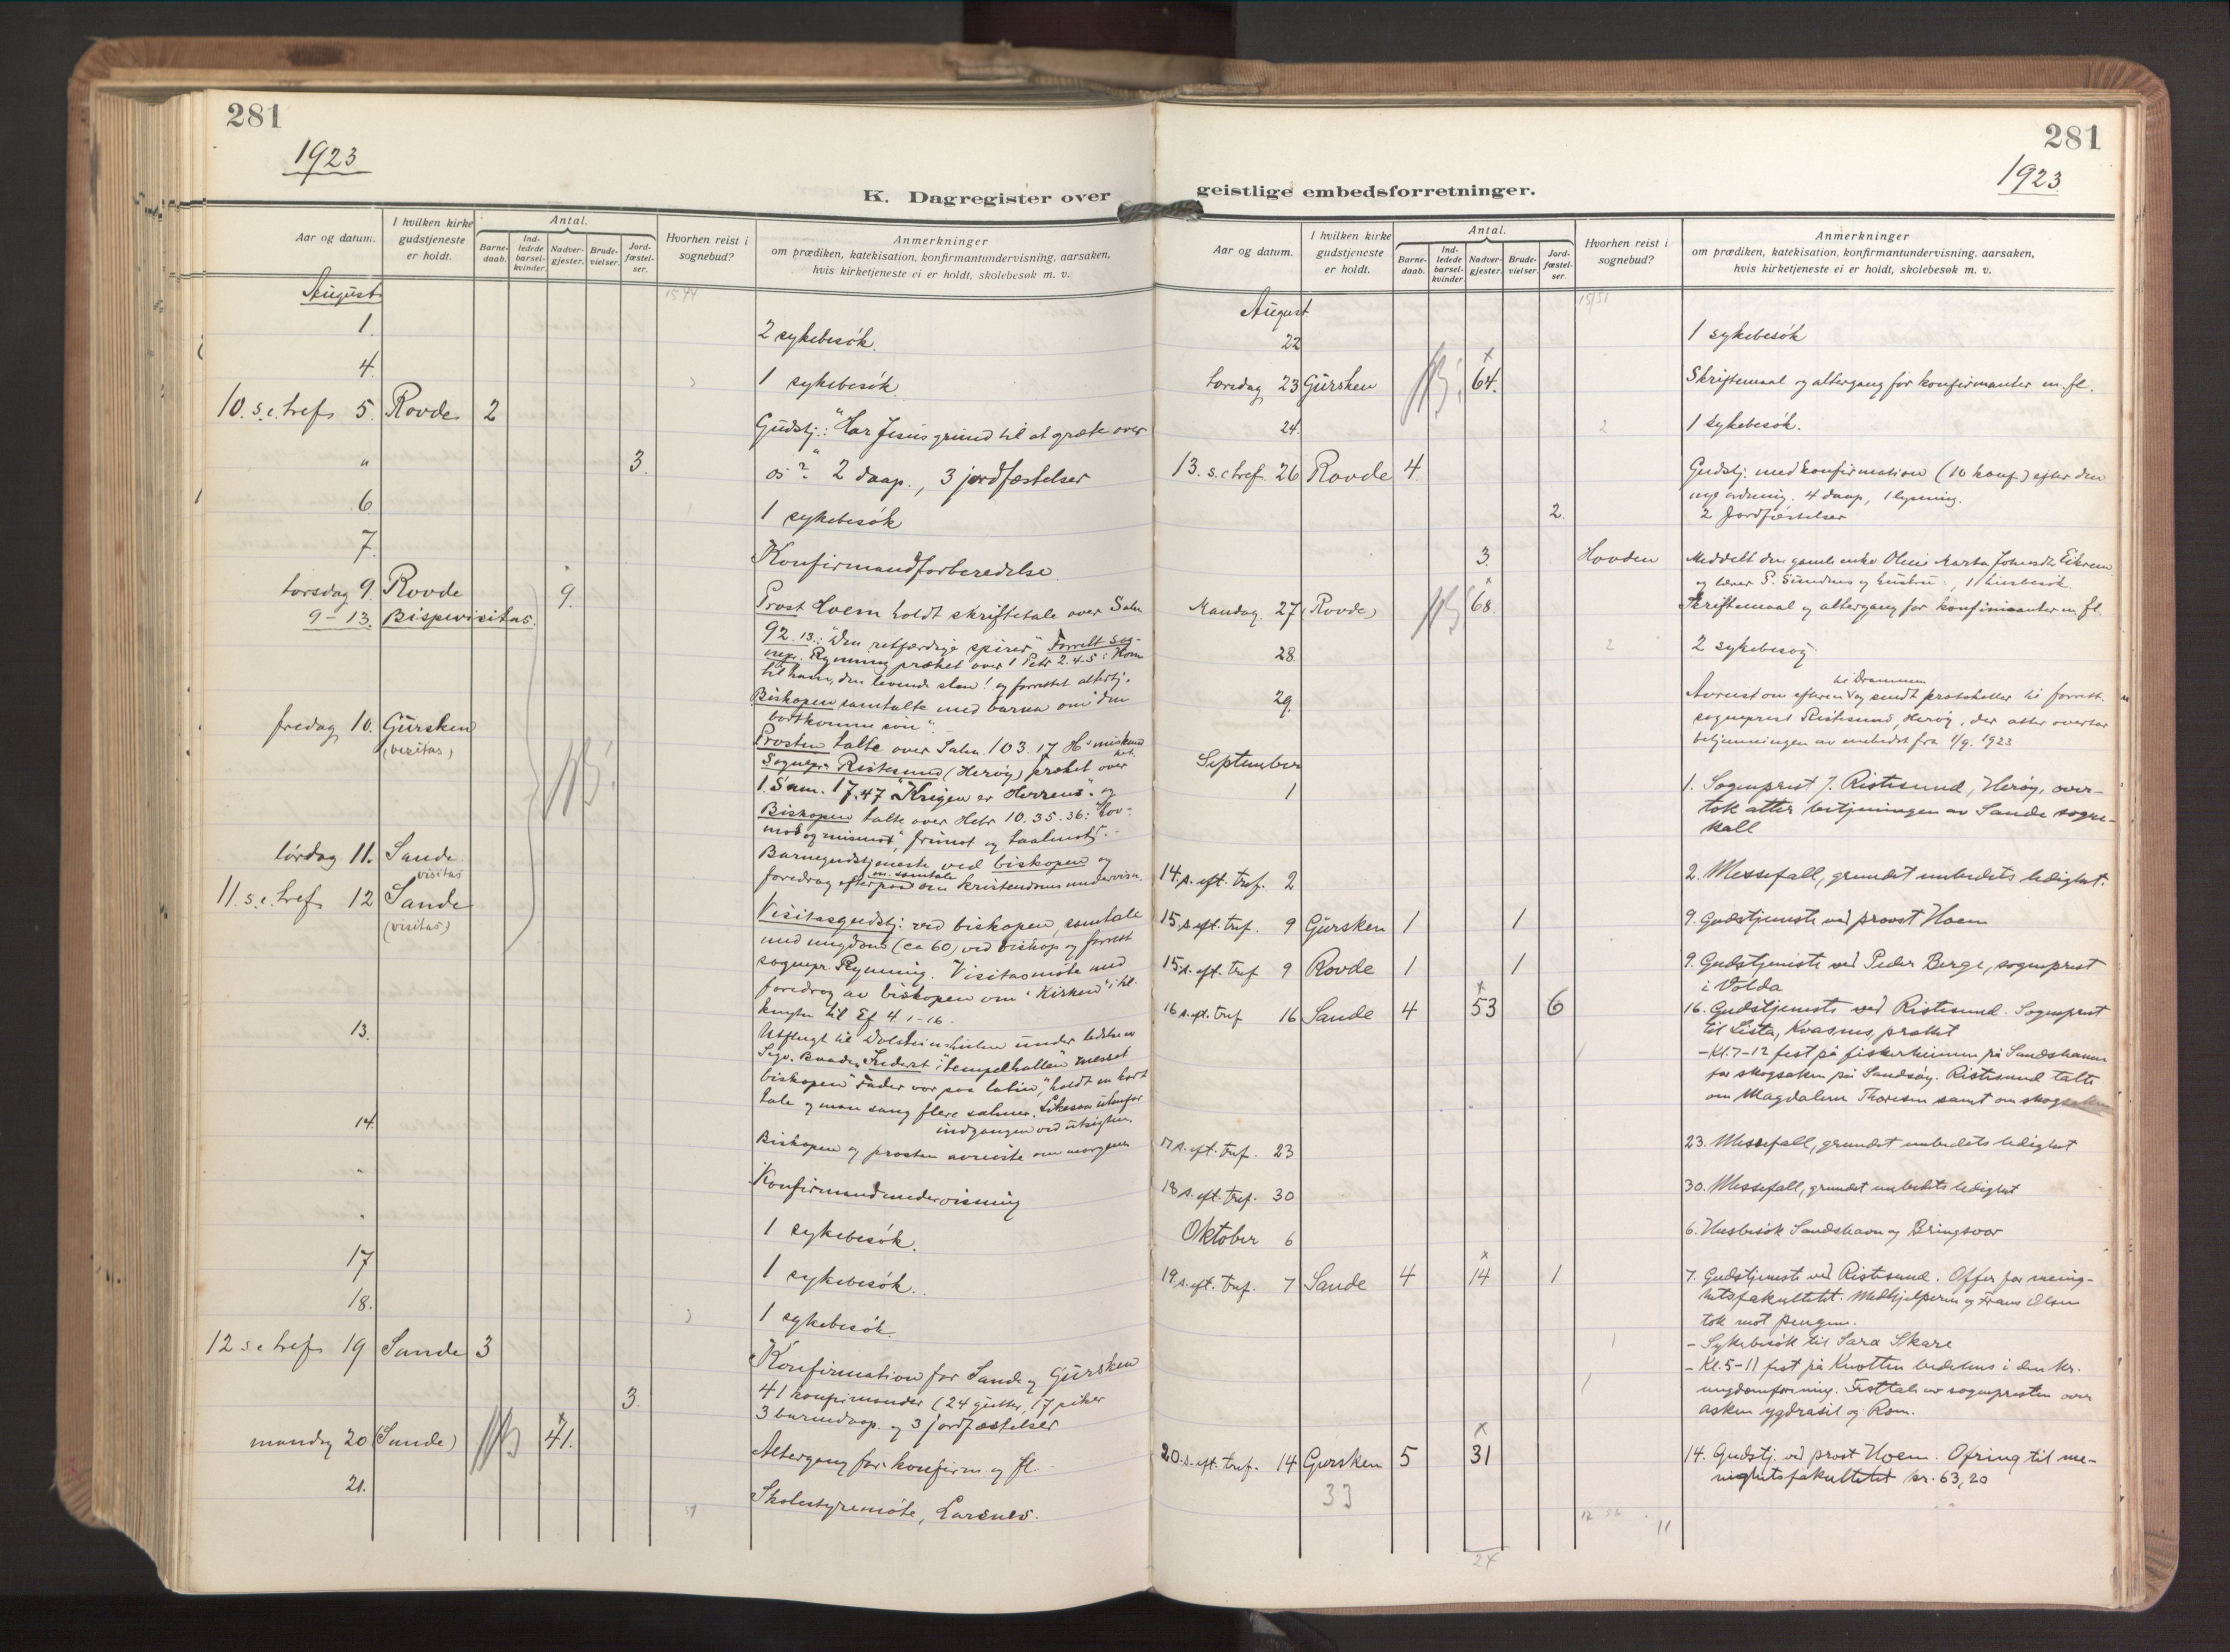 281
1923
K. Dagregister over
Aar og datum.
I hvilken kirke gudstjeneste er holdt.
Antal.
Barne-daab.
Ind-ledede barsel-kvinder.
Nadver-gjester.
Brude-vielser.
Jord-fæstel-ser.
Hvorhen reist i sognebud?
Anmerkninger
om prædiken, katekisation, konfirmantundervisning, aarsaken,
hvis kirketjeneste ei er holdt, skolebesøk m. v.
August
1. 2 sykebesök.
4. 1 sykebesök.
10. s. e. tref. 5. Rovde 2 Gudstj.: "Har Jesus grund til at græte over
" 3. os?" 2 daap., 3 jordfæstelser
6. 1 sykebesök
7. Konfirmandforberedelse
torsdag 9. Rovde 9. Prost Hoem holdt skriftetale over Salm
9-13. Bispevisitas. 92.13.: "Den retfærdige spirer". Forrett. sog-
nepr. Rynning præket over 1 Petr 2.4-5: Kom
til ham, den levende sten! og forrettet altertj.
Biskopen samtalte med barna om "den
bortkomne sön".
fredag 10. Gursken (visitas) Prosten talte over Salm. 103.17 H's miskund-
het.
Sognepr. Ristesund (Heröy) præket over
1. Sam. 17.47 "Krigen er Herrens" og
Biskopen talte over Hebr 10.35.36: "Hov-
mod og mismot, frimot og taalmot".
lördag 11. Sande visitas Barnegudstjeneste ved biskopen og
m. samtale
foredrag efterpaa om kristendomsundervisn.
11. s. e. tref. 12 Sande (visitas) Visitasgudstj. ved biskopen, samtale
med ungdom (ca 60) ved biskop og forrett
sognepr. Rynning. Visitasmöte med
foredrag av biskopen om "Kirken" i til-
knytn til Ef. 4.1-16.
13. Utflugt til Dolsteinshulen under ledelse av
i "tempelhallen" messet
biskopen "Fader vor paa latin", holdt en kort
tale og man sang flere salmer. Likesaa utenfor
indgangen ved utsigten.
14. Biskopen og prosten avreiste om morgenen
" Konfirmandundervisning
" 1 sykebesök.
17 1 sykebesök.
18. 1 sykebesök.
12 s e tref 19 Sande 3 Konfirmation for Sande og Gursken
3. 41 konfirmander (24 gutter, 17 piker
3 barnedaap. og 3 jordfæstelser
mandag 20 (Sande) 41. Altergang for konfirm og fl.
21. Skolestyremöte, Larsnes.
281
1923
geistlige embedsforretninger.
Aar og datum.
I hvilken kirke gudstjeneste er holdt.
Antal.
Barne-daab.
Ind-ledede barsel-kvinder.
Nadver-gjester.
Brude-vielser.
Jord-fæstel-ser.
Hvorhen reist i sognebud?
Anmerkninger
om prædiken, katekisation, konfirmantundervisning, aarsaken,
hvis kirketjeneste ei er holdt, skolebesøk m. v.
August
22 1 sykebesök
torsdag 23 Gursken 64. Skriftemaal og altergang for konfirmanter m. fl.
24. 1 sykebesök.
13. s. e tref. 26 Rovde 4 Gudstj. med konfirmation (10 konf.) efter den
nye ordning. 4 daap, 1 lysning.
2. 2 Jordfæstelser
3. Hovden Meddelt den gamle enke Oline Marta Eikrem
og lærer P. Sundnes og hustru, 1 husbesök.
Mandag. 27 (Rovde) 68. Skriftemaal og altergang for konfirmanter m. fl.
28. 2 sykebesög
29. til Drammen
sendt protokoller til forrett.
sogneprest Ristesund, Heröy, der atter overtar
betjeningen av embedet fra 1/9. 1923
September
1 1. Sogneprest J. Ristesund, Heröy, over-
tok atter betjeningen av Sande sogne-
kall
14. s. eft. tref. 2 2. Messefall, grundet embedets ledighet.
15. s. eft. tref. 9 Gursken 1 1 9. Gudstjeneste ved prost Hoem
15. s. eft. tref 9 Rovde 1 1 9. Gudstjeneste ved Peder Berge, sogneprest
i Volda
16 s. eft. tref 16 Sande 4 53 6 16. Gudstjeneste ved Ristesund. Sogneprest
til Lista, Kvasnes, preket
- Kl. 7-12 fest på fiskerheimen på Sandshamn
for skogsaken på Sandsöy. Ristesund talte
om Magdalene Thoresen samt om skogsaken
17 s. eft. tref. 23 23. Messefall, grundet embedets ledighet
18 s. eft. tref. 30 30. Messefall, grundet embedets ledighet
Oktober 6 6. Husbesök Sandshavn og Bringsvor
19 s. eft. tref. 7 Sande 4 14 1 7. Gudstjeneste ved Ristesund. Offer for menig-
hetsfakultetet. Medhjelperen og Frans Olsen
tok mot pengene.
- Sykebesök til Sara Skare
- Kl. 5-11 fest på Knotten bedehus i den kr.
ungdomforening. Festtale av sognepresten over
asken ygdrasil og Rom.
20. s. eft. tref. 14 Gursken 5 31 14. Gudstj. ved prost Hoem. Ofring til me-
nighetsfakultetet kr. 63,20
33
11
24